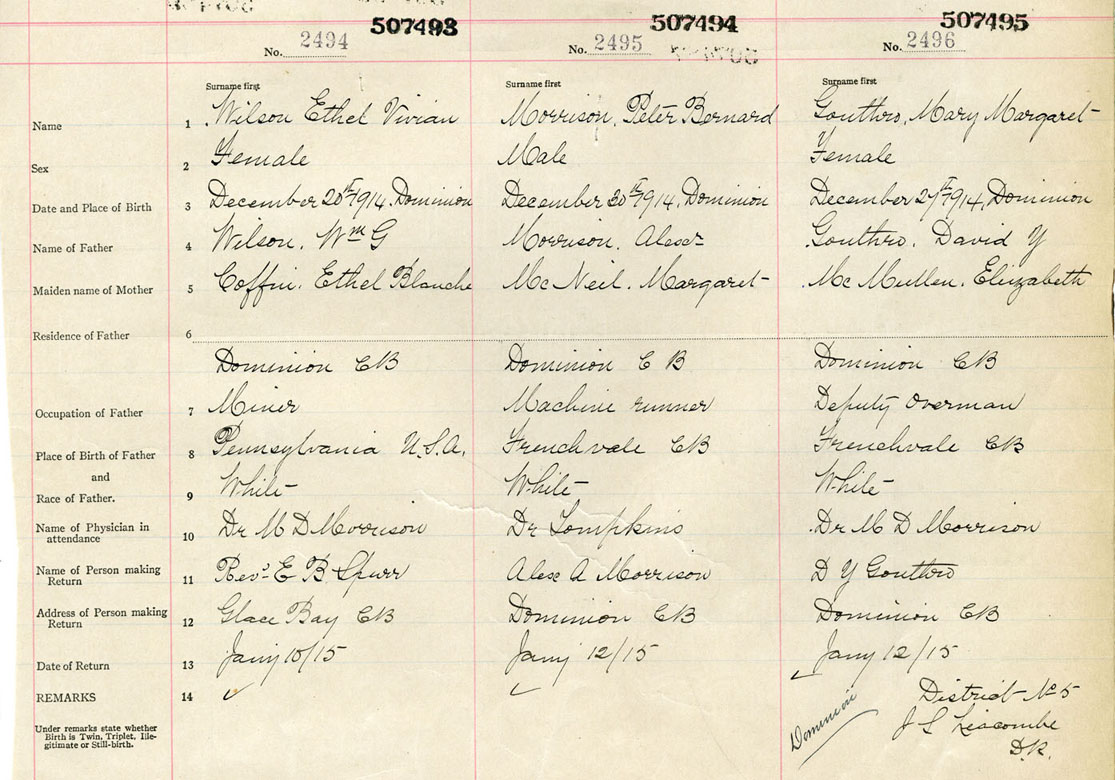 507493 507494 507495
No. 2494 No. 2495 No. 2496
Surname first Surname first Surname first
Name 1 Wilson Ethel Vivian Morrison, Peter Bernard Gouthro, Mary Margaret
Sex 2 Female Male Female
Date and Place of Birth 3 December 20th 1914, Dominion December 20th 1914, Dominion December 27th 1914, Dominion
Name of Father 4 Wilson, Wm G Morrison, Alexr Gouthro, David Y
Maiden name of Mother 5 Coffin, Ethel Blanche McNeil, Margaret McMullen, Elizabeth
Residence of Father 6
Dominion CB Dominion CB Dominion CB
Occupation of Father 7 Miner Machine runner Deputy Overman
Place of Birth of Father 8 Pennsylvania U.S.A. Frenchvale CB Frenchvale CB
and
Race of Father. 9 White White White
Name of Physician in attendance 10 Dr M D Morrison Dr Tompkins Dr M D Morrison
Name of Person making Return 11 Revd E B Spurr Alex A Morrison D Y Gouthro
Address of Person making Return 12 Glace Bay CB Dominion CB Dominion CB
Date of Return 13 Jany 10/15 Jany 12/15 Jany 12/15
REMARKS 14 Dominion District No 5
J S Liscombe
D.R.
Under remarks state whether
Birth is Twin, Triplet, Ille-
gitimate or Still-birth.